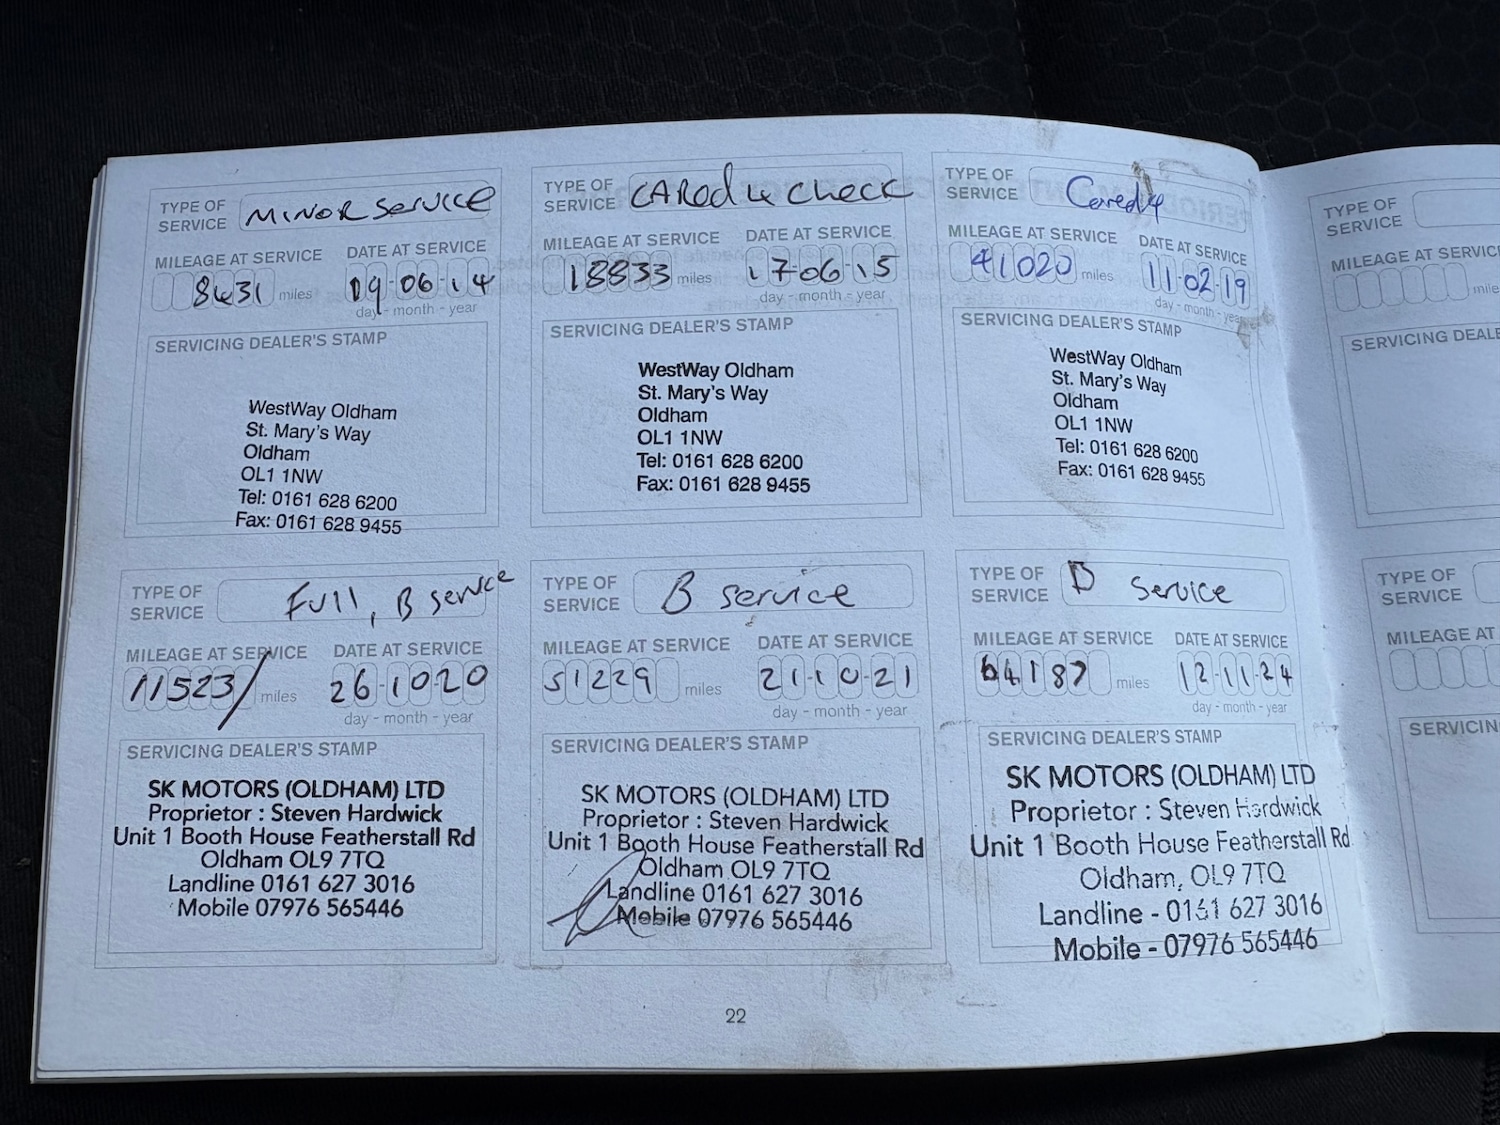 TYPE OF SERVICE MINOR SERVICE
MILEAGE AT SERVICE DATE AT SERVICE
8431 miles 09-06-14
day - month - year
SERVICING DEALER'S STAMP
WestWay Oldham
St. Mary's Way
Oldham
OL1 1NW
Tel: 0161 628 6200
Fax: 0161 628 9455
TYPE OF SERVICE CARED 4 CHECK
MILEAGE AT SERVICE DATE AT SERVICE
18833 miles 17-06-15
day - month - year
SERVICING DEALER'S STAMP
WestWay Oldham
St. Mary's Way
Oldham
OL1 1NW
Tel: 0161 628 6200
Fax: 0161 628 9455
TYPE OF SERVICE Cared 4
MILEAGE AT SERVICE DATE AT SERVICE
41020 miles 11-02-19
day - month - year
SERVICING DEALER'S STAMP
WestWay Oldham
St. Mary's Way
Oldham
OL1 1NW
Tel: 0161 628 6200
Fax: 0161 628 9455
TYPE OF SERVICE Full, B service
MILEAGE AT SERVICE DATE AT SERVICE
11523/ miles 26-10-20
day - month - year
SERVICING DEALER'S STAMP
SK MOTORS (OLDHAM) LTD
Proprietor : Steven Hardwick
Unit 1 Booth House Featherstall Rd
Oldham OL9 7TQ
Landline 0161 627 3016
Mobile 07976 565446
TYPE OF SERVICE B service
MILEAGE AT SERVICE DATE AT SERVICE
51229 miles 21-10-21
day - month - year
SERVICING DEALER'S STAMP
SK MOTORS (OLDHAM) LTD
Proprietor : Steven Hardwick
Unit 1 Booth House Featherstall Rd
Oldham OL9 7TQ
Landline 0161 627 3016
Mobile 07976 565446
TYPE OF SERVICE B Service
MILEAGE AT SERVICE DATE AT SERVICE
64187 miles 12-11-24
day - month - year
SERVICING DEALER'S STAMP
SK MOTORS (OLDHAM) LTD
Proprietor : Steven Hardwick
Unit 1 Booth House Featherstall Rd
Oldham, OL9 7TQ
Landline - 0161 627 3016
Mobile - 07976 565446
22
TYPE OF SERVICE
MILEAGE AT SERVIC
mile
SERVICING DEAL
TYPE OF SERVICE
MILEAGE AT
SERVICIN